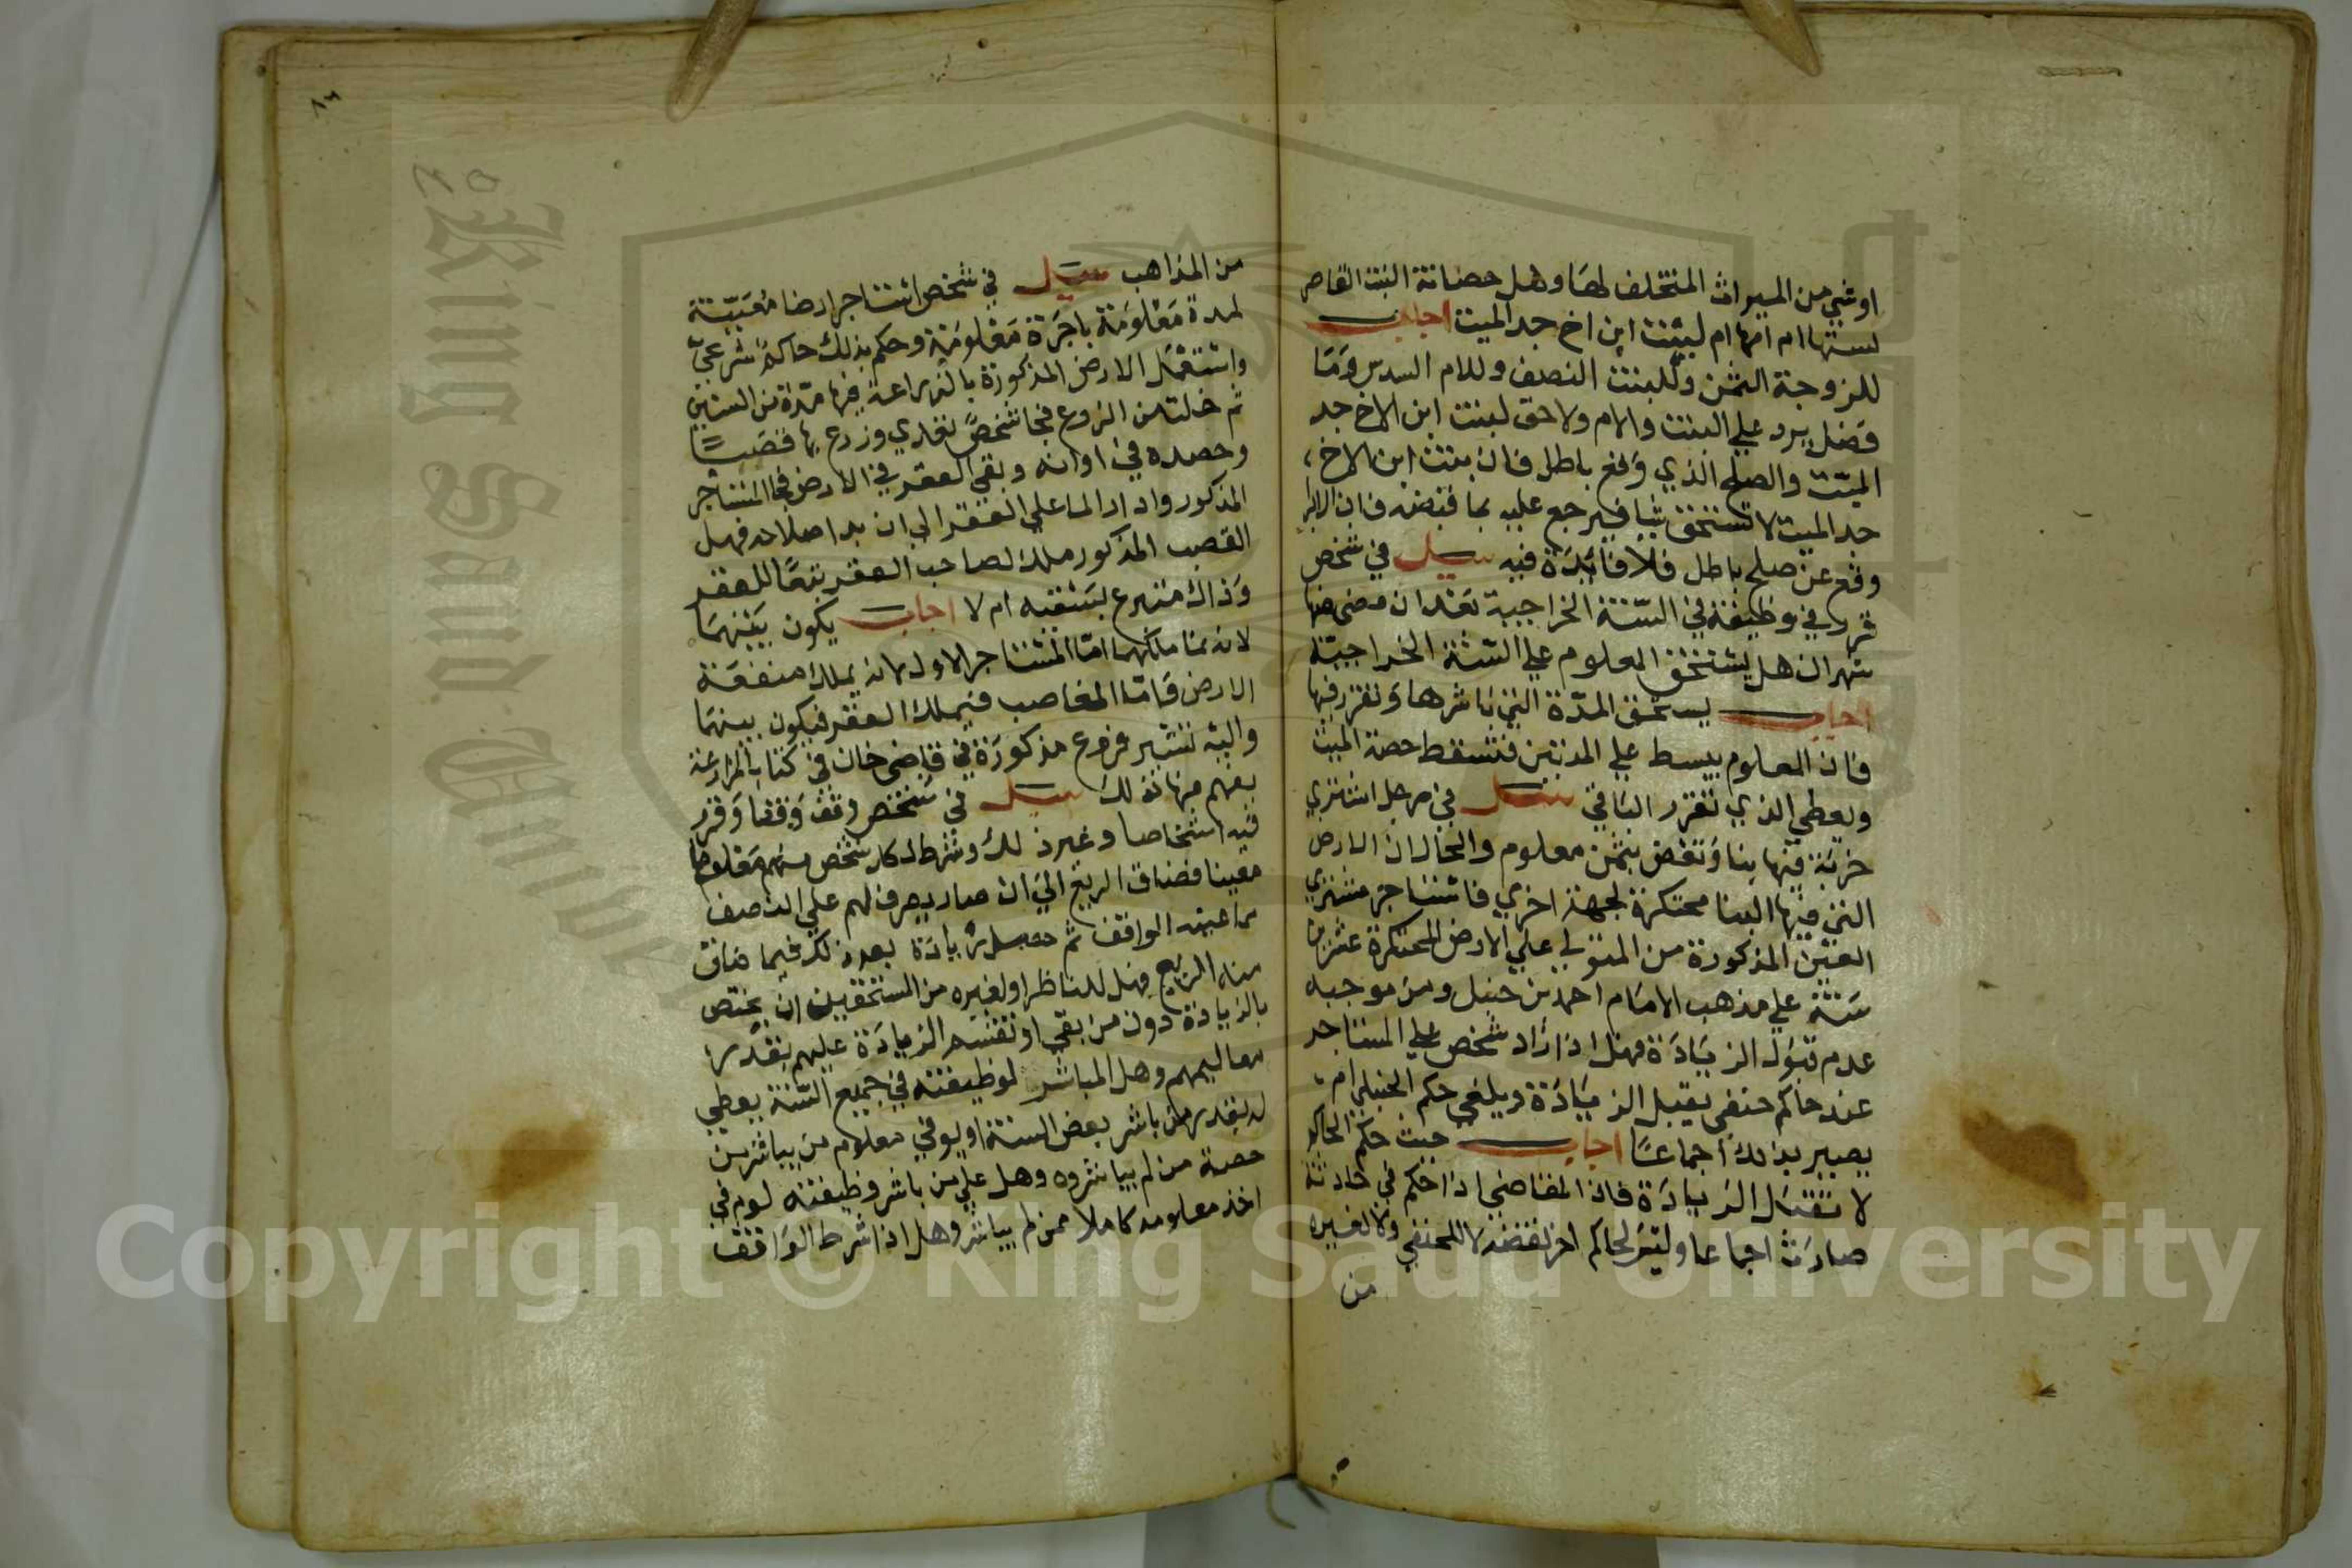 اوشي من الميراث المتخلف لها وهل حضانة البنت القاصر
لستها ام امها ام لبنت ابن اخ جد الميت اجاب
للزوجة الثمن وللبنت النصف وللام السدس وما
فضل يرد علي البنت والام ولا حق لبنت ابن الاخ جد
الميت والصلح الذي وقع باطل فان بنت ابن الاخ
جد الميت لا تستحق شيا فيرجع عليه بما قبضه فان الابرا
وقع عن صلح باطل فلا فائدة فيه سيل في شخص
قرر في وظيفة في السنة الخراجية بعد ان مضي منها
شهران هل يستحق المعلوم علي السنة الخراجية
اجاب يستحق المدة التي باشرها وتقرر فيها
فان المعلوم يبسط علي المدتين فتسقط حصة الميت
ويعطي الذي تقرر الباقي سيل في رجل اشتري
خربة فيها بنا ونقض بثمن معلوم والحال ان الارض
التي فيها البنا محتكرة لجهة اخري فاستاجر مشتري
العين المذكورة من المتولي علي الارض المحتكرة عشرين
سنة علي مذهب الامام احمد بن حنبل ومن موجبه
عدم قبول الزيادة فهل اذا زاد شخص علي المستاجر
عند حاكم حنفي يقبل الزيادة ويلغي حكم الحنبلي ام
يصير بذلك اجماعا اجاب حيث حكم الحاكم
لا تقبل الزيادة فاذا القاضي اذا حكم في حادثة
صارت اجماعا وليس لحاكم اخر نقضه لا للحنفي ولا لغيره
من
٨٦
من المذاهب سيل في شخص استاجر ارضا معينة
لمدة معلومة باجرة معلومة وحكم بذلك حاكم شرعي
واستعمل الارض المذكورة بالزراعة فيها مدة من السنين
ثم خلت من الزرع فجا شخص تعدي وزرع بها قصبا
وحصده في اوانه وبقي العقر في الارض فجا المستاجر
المذكور وادار الما علي العقر الي ان بدا صلاحه فهل
القصب المذكور ملك لصاحب العقر تبعا للعقر
وذاك متبرع بسقيه ام لا اجاب يكون بينهما
لانه نما ملكهما اما المستاجر الاول لانه يملك منفعة
الارض واما الغاصب فيملك العقر فيكون بينهما
واليه تشير فروع مذكورة في قاضي خان في كتاب المزارعة
يفهم منها ذلك سيل في شخص وقف وقفا وقرر
فيه اشخاصا وغير ذلك وشرط لكل شخص منهم معلوما
معينا فضاق الريع الي ان صار يصرف لهم علي النصف
مما عينه الواقف ثم حصل زيادة بعد ذلك فيما ضاق
منه الريع فهل للناظر او لغيره من المستحقين ان يختص
بالزيادة دون من بقي او تقسم الزيادة عليهم بقدر
معاليمهم وهل المباشر لوظيفته في جميع السنة يعطي
له بقدر من باشر بعض السنة او يوفي معلوم من يباشر من
حصة من لم يباشروه وهل علي من باشر وظيفته لوم في
اخذ معلومه كاملا ممن لم يباشر وهل اذا شرط الواقف
Copyright © King Saud University
King Saud Univer